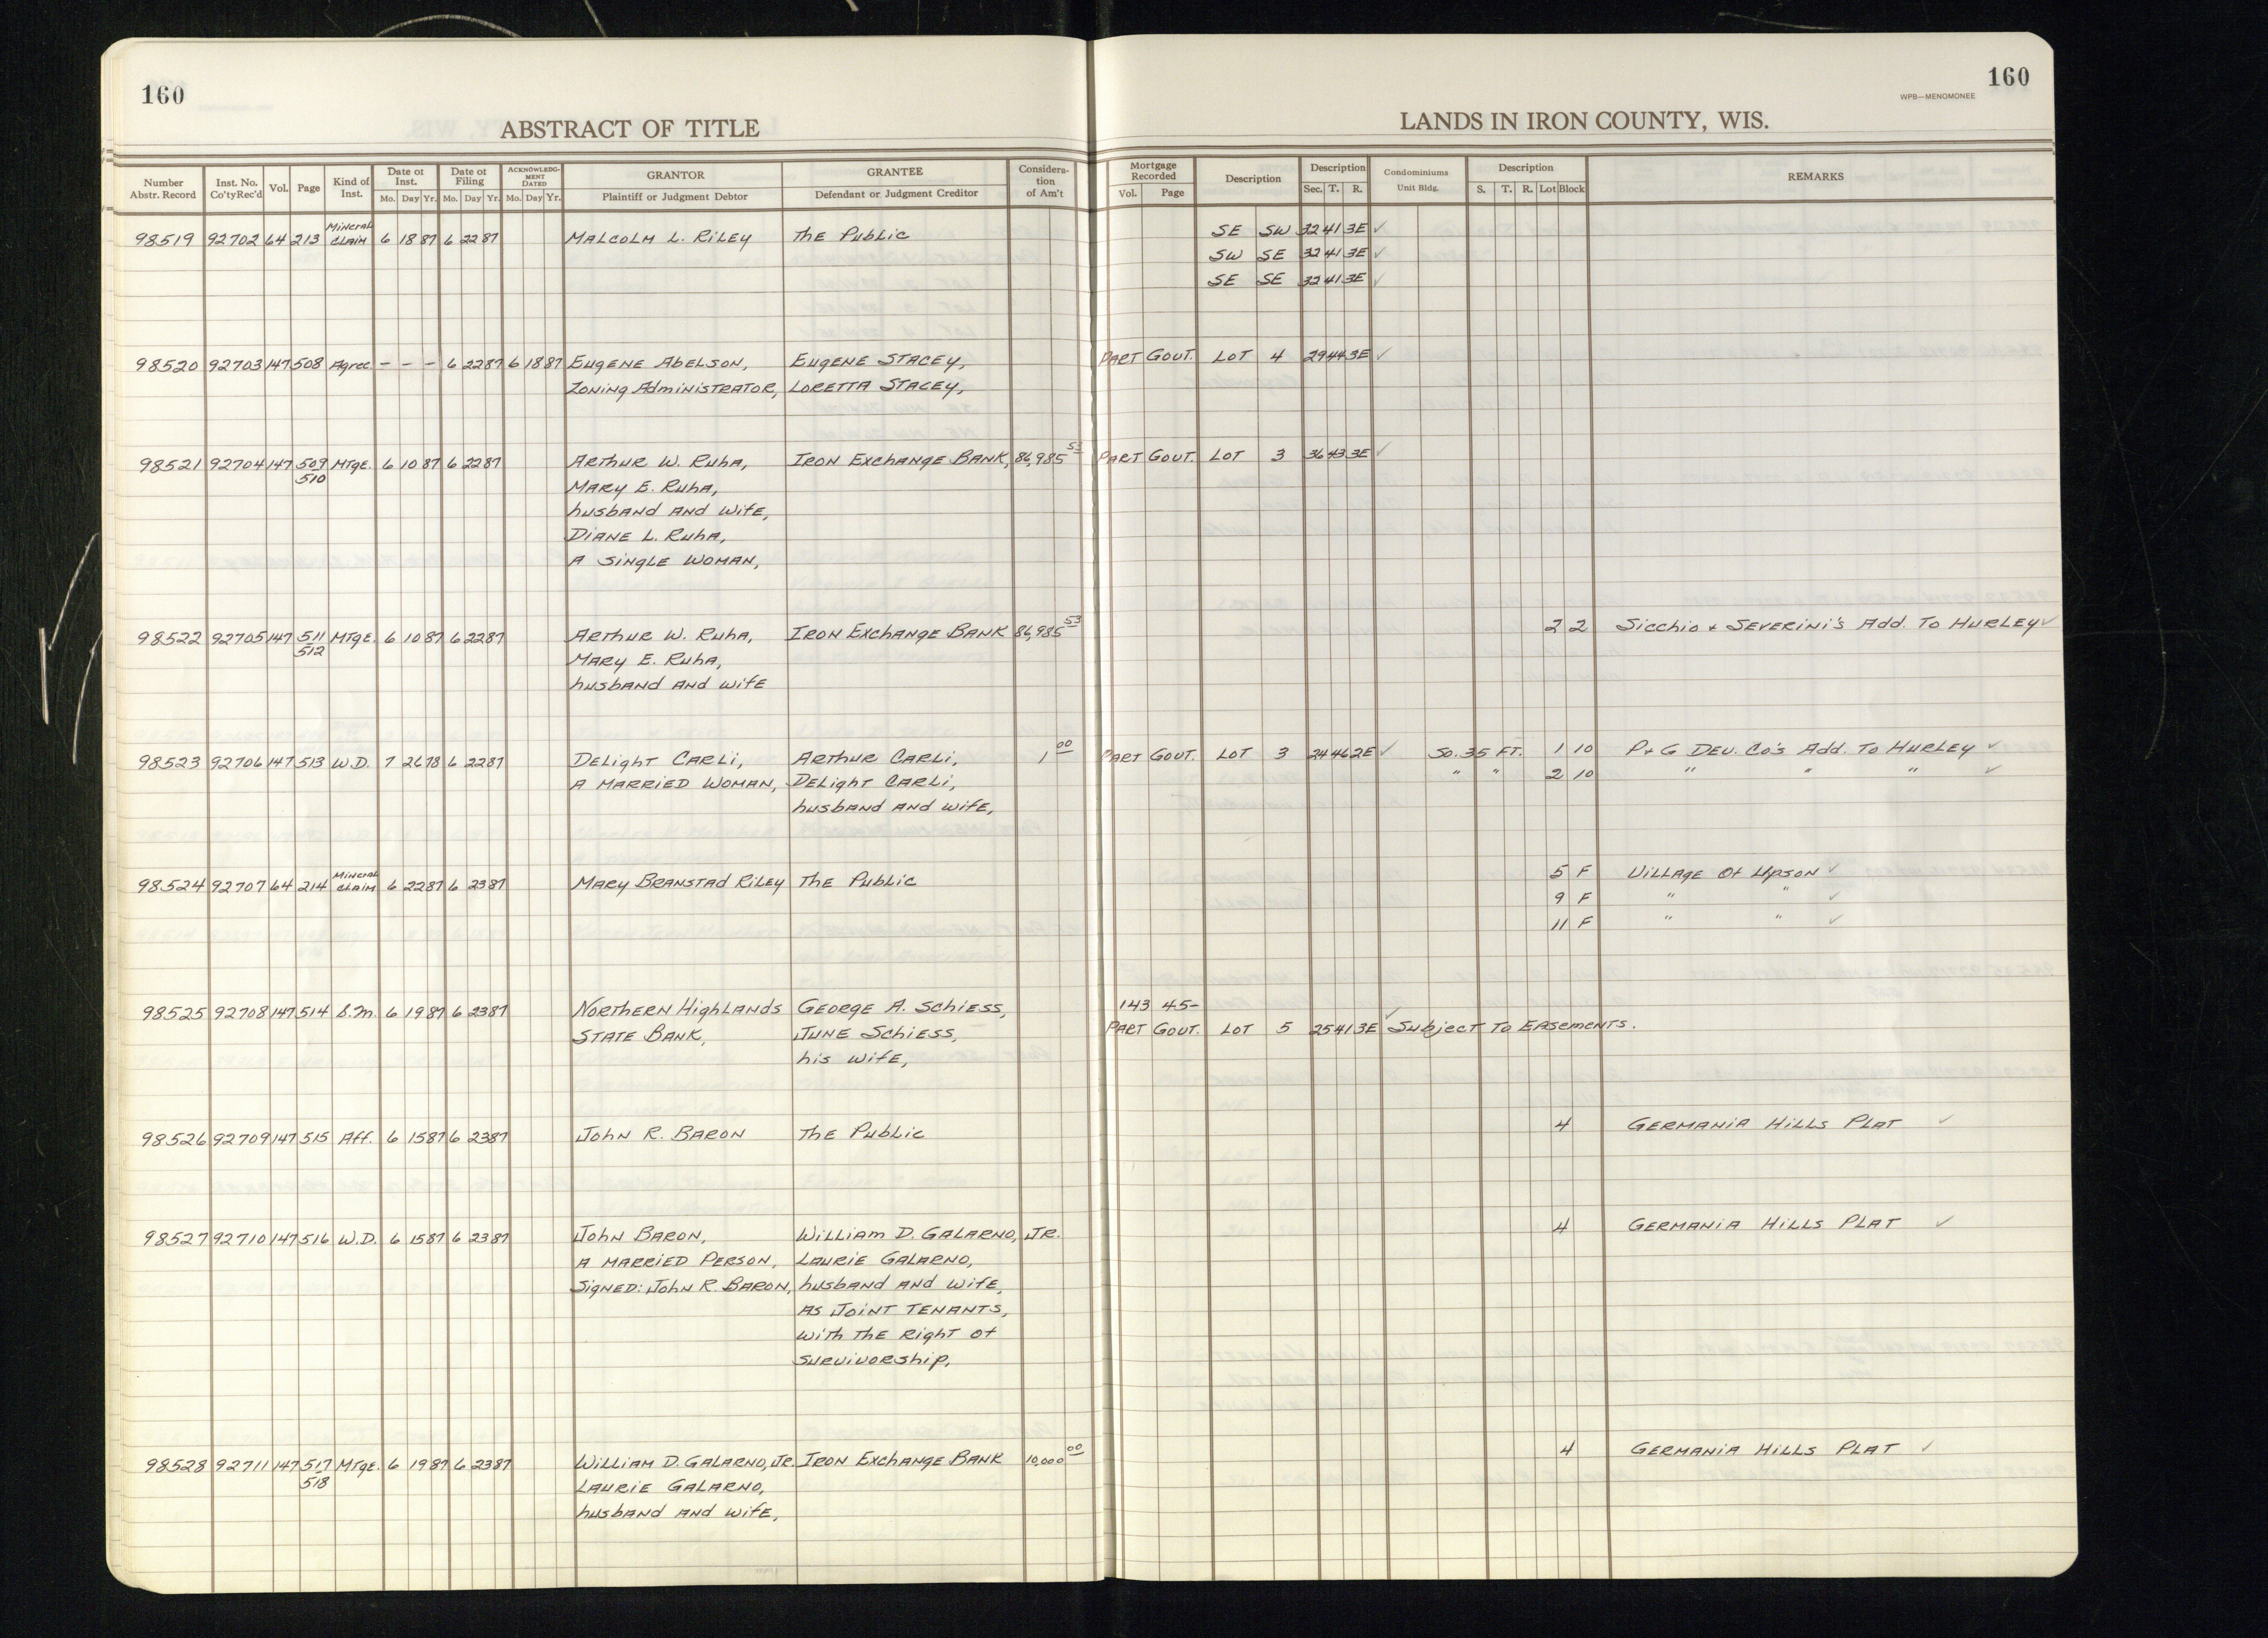 160
ABSTRACT OF TITLE
Number Abstr. Record | Inst. No. Co'tyRec'd | Vol. | Page | Kind of Inst. | Date of Inst. Mo. Day Yr. | Date of Filing Mo. Day Yr. | ACKNOWLEDGMENT DATED Mo. Day Yr. | GRANTOR Plaintiff or Judgment Debtor | GRANTEE Defendant or Judgment Creditor | Consideration of Am't
98519 92702 64 213 Mineral Claim 6 18 87 6 22 87 Malcolm L. Riley The Public
98520 92703 147 508 Agree. - - - 6 22 87 6 18 87 Eugene Abelson, Eugene Stacey,
Zoning Administrator, Loretta Stacey,
98521 92704 147 509 Mtge. 6 10 87 6 22 87 Arthur W. Ruha, Iron Exchange Bank, 86,985 53
510 Mary E. Ruha,
husband and wife,
Diane L. Ruha,
a single woman,
98522 92705 147 511 Mtge. 6 10 87 6 22 87 Arthur W. Ruha, Iron Exchange Bank 86,985 53
512 Mary E. Ruha,
husband and wife
98523 92706 147 513 W.D. 7 26 78 6 22 87 Delight Carli, Arthur Carli, 1 00
a married woman, Delight Carli,
husband and wife,
98524 92707 64 214 Mineral Claim 6 22 87 6 23 87 Mary Branstad Riley The Public
98525 92708 147 514 S.M. 6 19 87 6 23 87 Northern Highlands George A. Schiess,
State Bank, June Schiess,
his wife,
98526 92709 147 515 Aff. 6 15 87 6 23 87 John R. Baron The Public
98527 92710 147 516 W.D. 6 15 87 6 23 87 John Baron, William D. Galarno, Jr.
a married person, Laurie Galarno,
Signed: John R. Baron, husband and wife,
as joint tenants,
with the right of
survivorship,
98528 92711 147 517 Mtge. 6 19 87 6 23 87 William D. Galarno, Jr. Iron Exchange Bank 10,000 00
518 Laurie Galarno,
husband and wife,
160
WPB—MENOMONEE
LANDS IN IRON COUNTY, WIS.
Mortgage Recorded Vol. Page | Description | Description Sec. T. R. | Condominiums Unit Bldg. | Description S. T. R. Lot Block | REMARKS
SE SW 32 41 3E ✓
SW SE 32 41 3E ✓
SE SE 32 41 3E ✓
Part Gout. Lot 4 29 44 3E ✓
Part Gout. Lot 3 36 43 3E ✓
2 2 Sicchio & Severini's Add. To Hurley ✓
Part Gout. Lot 3 24 46 2E ✓ So. 35 Ft. 1 10 P & G Dev. Co's Add. To Hurley ✓
" " 2 10 " " " ✓
5 F Village of Upson ✓
9 F " " ✓
11 F " " ✓
143 45- ✓
Part Gout. Lot 5 25 41 3E Subject To Easements.
4 Germania Hills Plat ✓
4 Germania Hills Plat ✓
4 Germania Hills Plat ✓